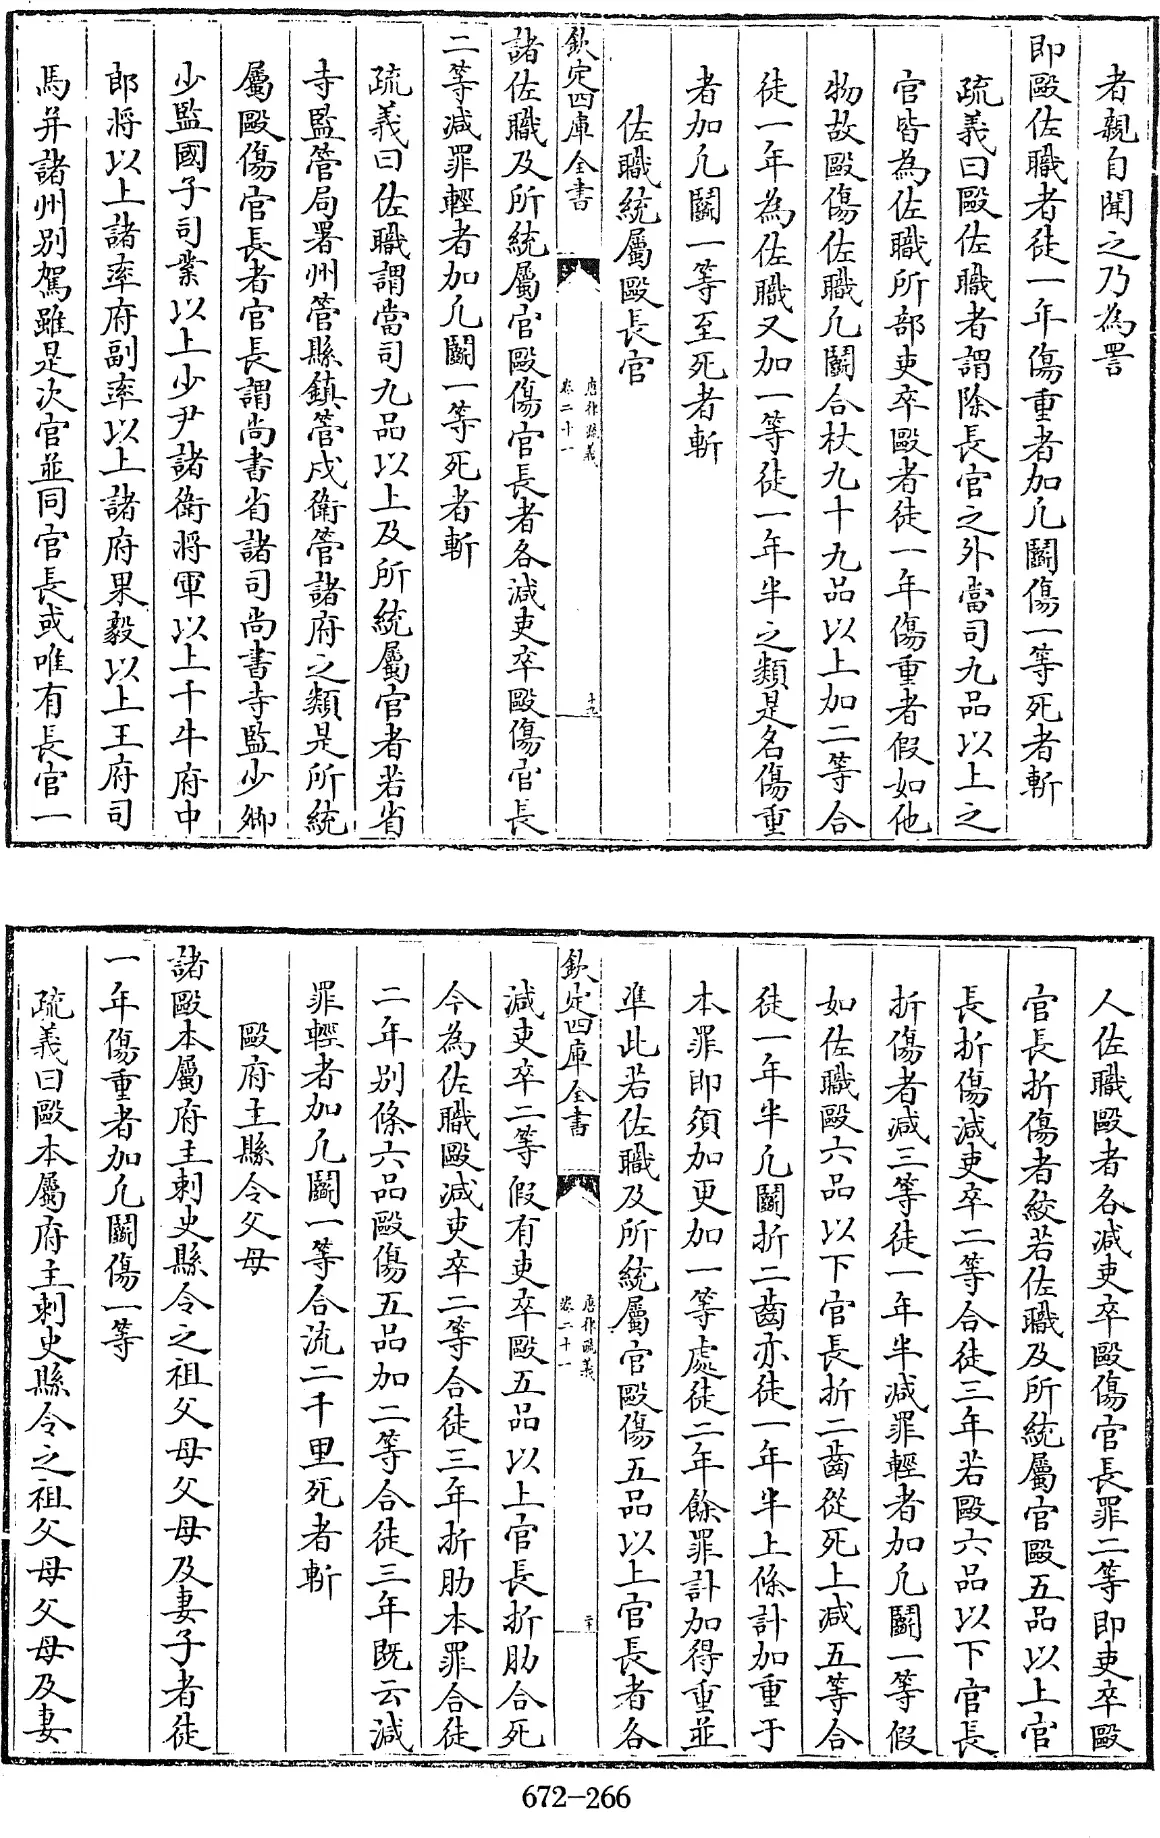 者親自聞之乃為詈
即毆佐職者徒一年傷重者加凡鬭傷一等死者斬
疏義曰毆佐職者謂除長官之外當司九品以上之
官皆為佐職所部吏卒毆者徒一年傷重者假如他
物故毆傷佐職凡鬭合杖九十九品以上加二等合
徒一年為佐職又加一等徒一年半之類是名傷重
者加凡鬭一等至死者斬
佐職統屬毆長官
欽定四庫全書
唐律疏義
卷二十一
十九
諸佐職及所統屬官毆傷官長者各減吏卒毆傷官長
二等減罪輕者加凡鬭一等死者斬
疏義曰佐職謂當司九品以上及所統屬官者若省
寺監管局署州管縣鎮管戍衛管諸府之類是所統
屬毆傷官長者官長謂尚書省諸司尚書寺監少卿
少監國子司業以上少尹諸衛將軍以上千牛府中
郎將以上諸率府副率以上諸府果毅以上王府司
馬并諸州別駕雖是次官並同官長或唯有長官一
人佐職毆者各減吏卒毆傷官長罪二等即吏卒毆
官長折傷者絞若佐職及所統屬官毆五品以上官
長折傷減吏卒二等合徒三年若毆六品以下官長
折傷者減三等徒一年半減罪輕者加凡鬭一等假
如佐職毆六品以下官長折二齒從死上減五等合
徒一年半凡鬭折二齒亦徒一年半上條計加重于
本罪即須加更加一等處徒二年餘罪計加得重並
準此若佐職及所統屬官毆傷五品以上官長者各
欽定四庫全書
唐律疏義
卷二十一
二十
減吏卒二等假有吏卒毆五品以上官長折肋合死
今為佐職毆減吏卒二等合徒三年折肋本罪合徒
二年別條六品毆傷五品加二等合徒三年既云減
罪輕者加凡鬭一等合流二千里死者斬
毆府主縣令父母
諸毆本屬府主刺史縣令之祖父母父母及妻子者徒
一年傷重者加凡鬭傷一等
疏義曰毆本屬府主刺史縣令之祖父母父母及妻
672-266